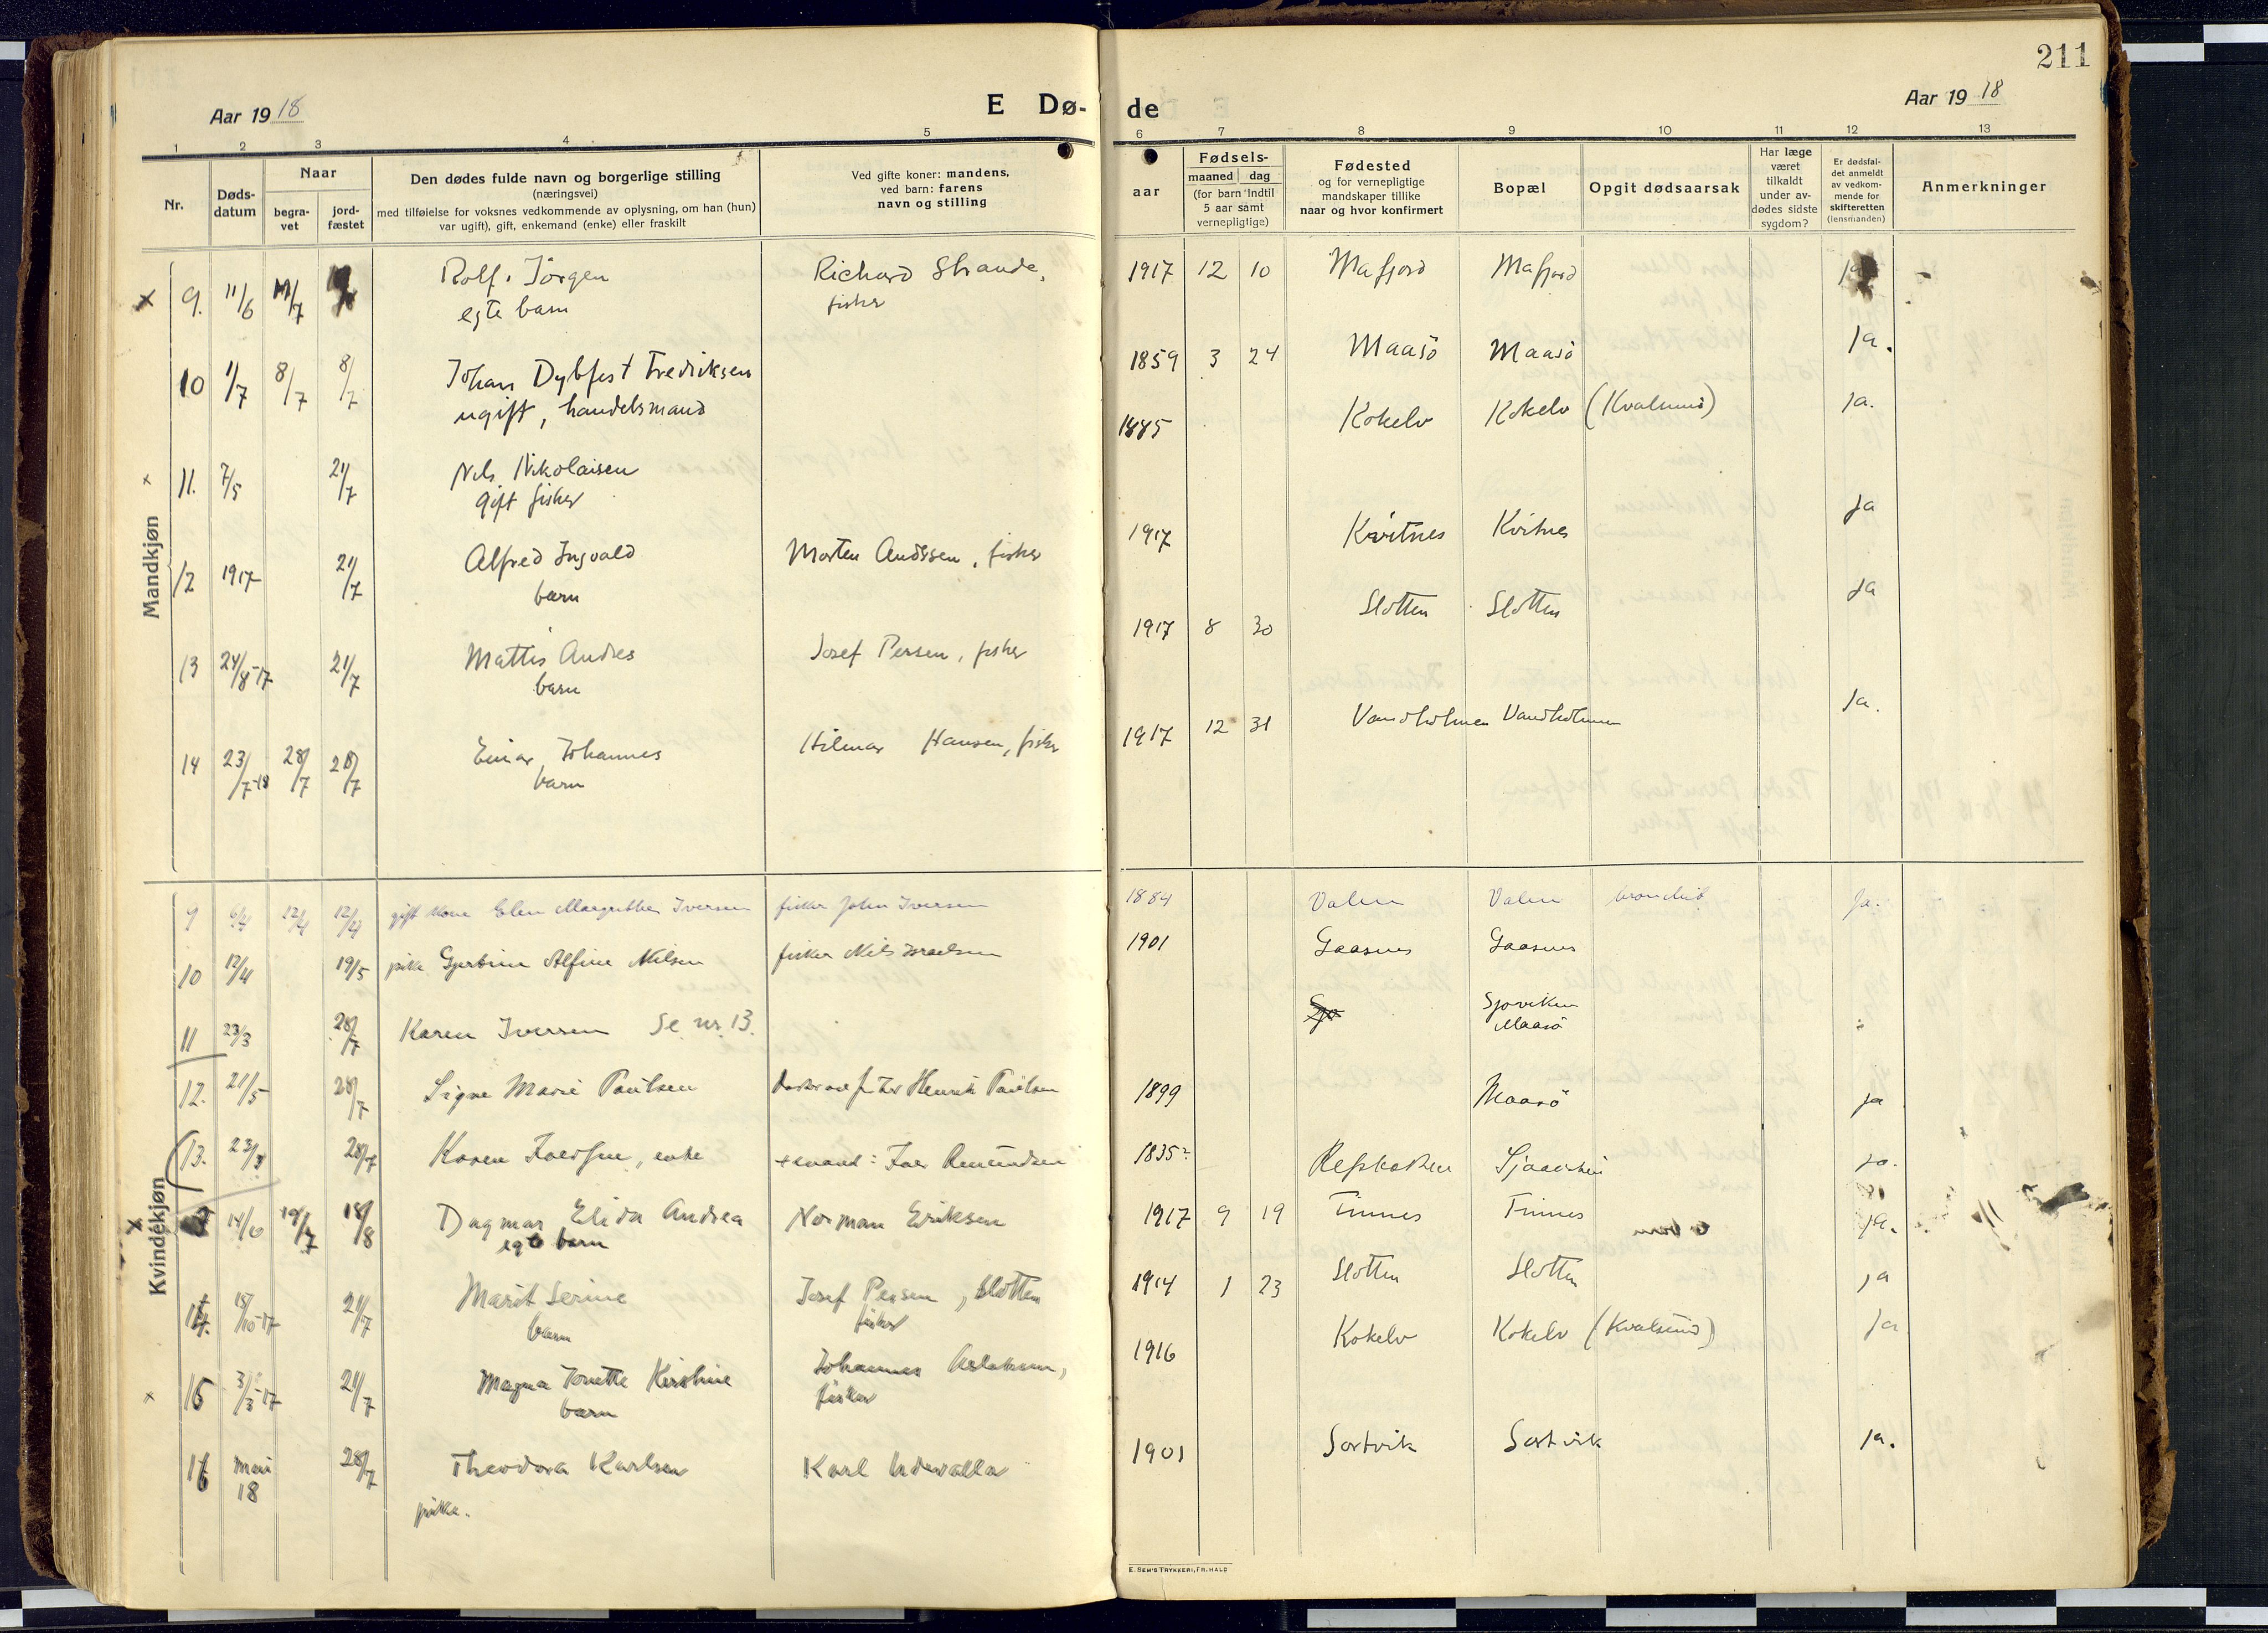 211
Aar 19 18
E Dø-
de
Aar 19 18
1 2 3 4 5 6 7 8 9 10 11 12 13
Nr.
Døds-
datum
Naar
begra-
vet
jord-
fæstet
Den dødes fulde navn og borgerlige stilling
(næringsvei)
med tilføielse for voksnes vedkommende av oplysning, om han (hun)
var ugift), gift, enkemand (enke) eller fraskilt
Ved gifte koner: mandens,
ved barn: farens
navn og stilling
aar
Fødsels-
maaned dag
(for barn indtil
5 aar samt
vernepligtige)
Fødested
og for vernepligtige
mandskaper tillike
naar og hvor konfirmert
Bopæl
Opgit dødsaarsak
Har læge
været
tilkaldt
under av-
dødes sidste
sygdom?
Er dødsfal-
det anmeldt
av vedkom-
mende for
skifteretten
(lensmanden)
Anmerkninger
Mandkjøn
x 9. 11/6 11/7 Rolf. Jörgen Richard Strande, 1917 12 10 Mafjord Mafjord ja
egte barn fisker
10 1/7 8/7 8/7 Johan Dybfest Fredriksen 1859 3 24 Maasö Maasö ja.
ugift, handelsmand
x 11. 7/5 21/7 Nils Nikolaisen 1885 Kokelv Kokelv (Kvalsund) ja.
gift fisker
12 1917 21/7 Alfred Ingvald Morten Andersen, fisker 1917 Kvitnes Kvitnes ja
barn
13 24/8-17 21/7 Mattis Andres Josef Persen, fisker 1917 8 30 Slotten Slotten ja
barn
14 23/7-18 28/7 28/7 Einar Johannes Hilmar Hansen, fisker 1917 12 31 Vandholmen Vandholmen ja.
barn
Kvindekjøn
9 6/4 12/4 12/4 gift kone Elen Margrethe Iversen fisker John Iversen 1884 Valen Valen bronchit ja.
10 12/4 19/5 pike Gjertine Alfine Nilsen fisker Nils Israelsen 1901 Gaasnes Gaasnes
11 23/3 28/7 Karen Iversen Se nr. 13. Sjo Sjoviken
Maasö
12. 21/5 28/7 Signe Marie Paulsen Henrik Paulsen 1899 Maasö ja
13. 23/3 28/7 Karen Iversen, enke + mand: Iver 1835? Refsbotten ja.
x 14/6 19/7 18/8 Dagmar Elida Andrea Norman Eriksen 1917 9 19 Finnes Finnes ja.
egte barn
15/10-17 21/7 Marit Serine Josef Persen, Slotten 1914 1 23 Slotten Slotten ja
barn fisker
x 15 3/3-17 21/7 Magna Jonette Kirstine Johannes Aslaksen, 1916 Kokelv Kokelv (Kvalsund) ja
barn fisker
16 Mai 28/7 Theodora Karlsen Karl Udevalla 1901 Sortvik Sortvik ja.
18
pike.
E. SEM'S TRYKKERI, FR.HALD